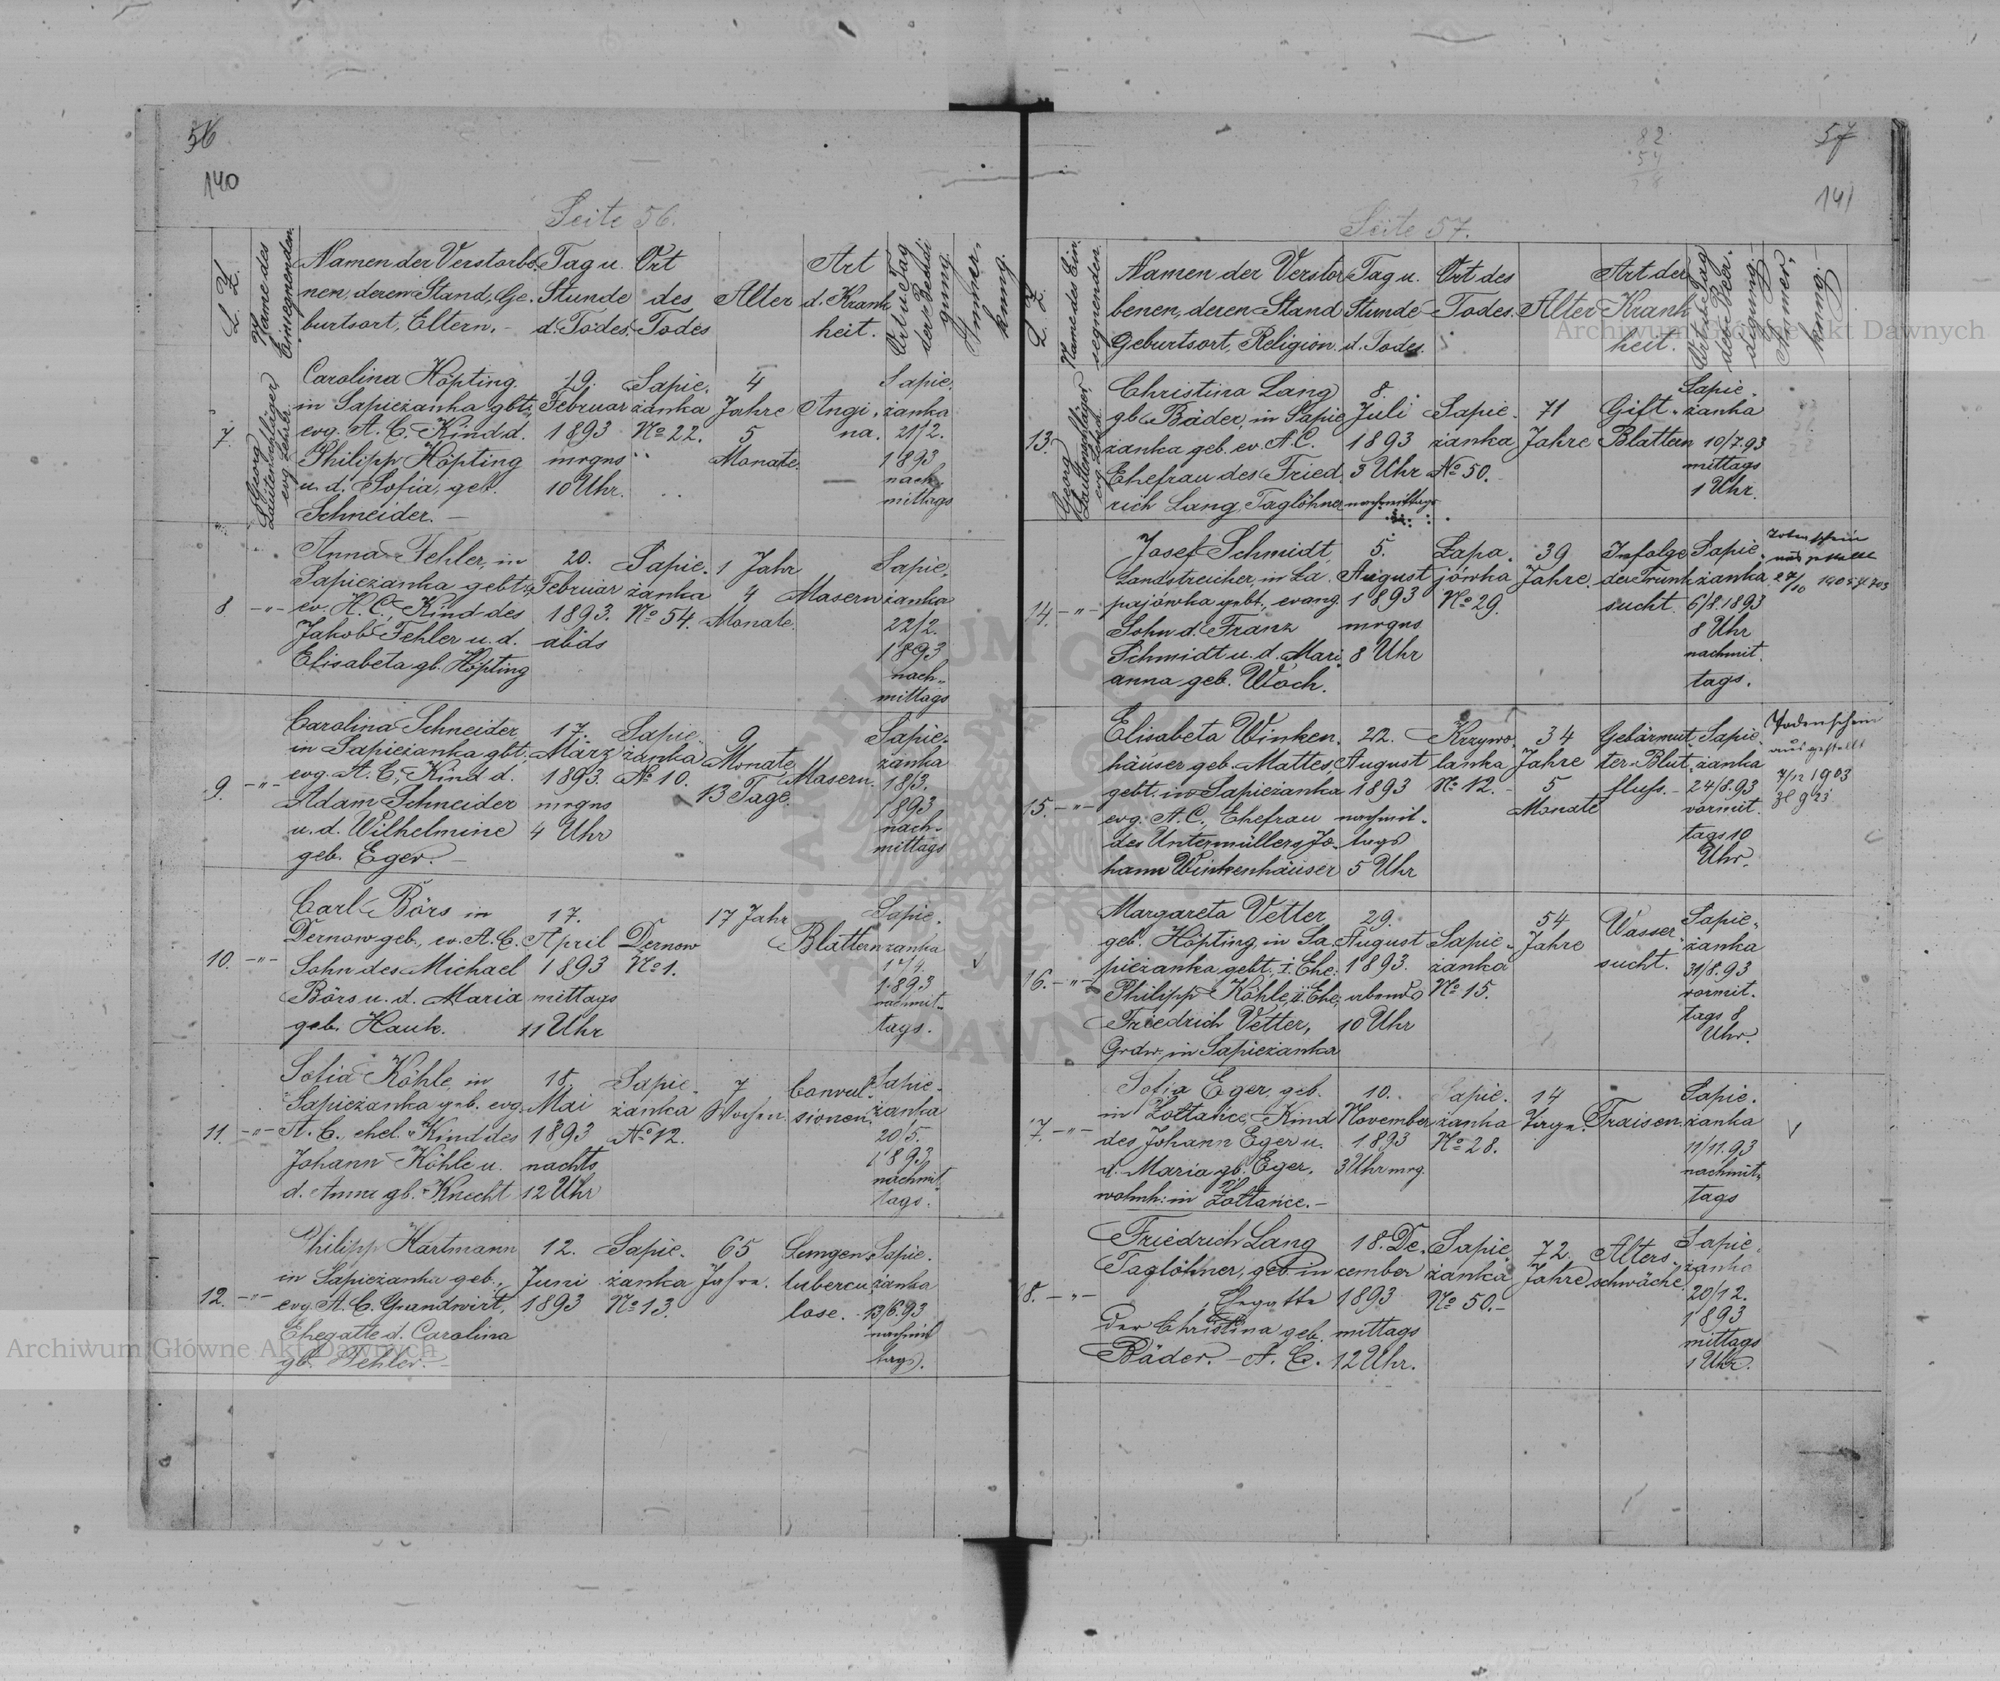 56
140
Seite 56.
L. Z.
Name des
Einsegnenden.
Namen der Verstorbe-
nen, deren Stand, Ge-
burtsort, Eltern. -
Tag u.
Stunde
d. Todes.
Ort
des
Todes
Alter
Art
d. Krank
heit.
Ort u. Tag
der Beerdi
gung.
Anmer-
kung.
7.
Georg
Lautenschläger
evg. Lehrer
Carolina Höpting.
in Sapiezanka gbt.,
evg. A. C. Kind d.
Philipp Höpting
u. d. Sofia, geb.
Schneider. -
19.
Februar
1893
mrgns
10 Uhr.
Sapie-
zanka
No 22.
4
Jahre
5
Monate.
Angi-
na.
Sapie-
zanka
21/2.
1893
nach-
mittags
8
-"-
Anna Fehler, in
Sapiezanka gebt.,
ev. H. C., Kind des
Jakob Fehler u. d.
Elisabeta gb. Höpting
20.
Februar
1893.
abds
Sapie-
zanka
No 54.
1 Jahr
4
Monate.
Masern
Sapie-
zanka
22/2.
1893
nach-
mittags
9.
-"-
Carolina Schneider
in Sapiezanka gbt.,
evg. A. C., Kind d.
Adam Schneider
u. d. Wilhelmine
geb. Eger. -
17.
März
1893.
mrgns
4 Uhr
Sapie-
zanka
No 10.
9
Monate
13 Tage.
Masern.
Sapie-
zanka
18/3.
1893
nach-
mittags
10.
-"-
Carl Börs in
Dernow geb., ev. A. C.
Sohn des Michael
Börs u. d. Maria
geb. Hauk.
17.
April
1893
mittags
11 Uhr
Dernow
No 1.
17 Jahr
Blattern
Sapie-
zanka
1893
nachmit-
tags.
11.
-"-
Sofia Köhle, in
Sapiezanka geb. evg.
A. C. ehel. Kind des
Johann Köhle u.
d. Anna gb. Knecht
18.
Mai
1893
nachts
12 Uhr
Sapie-
zanka
No 12.
7
Wochen
Convul-
sionen.
Sapie-
zanka
20/5.
1893
nachmit
tags.
12.
-"-
Philipp Hartmann
in Sapiezanka geb.,
evg. A. C. Grundwirt,
Ehegatte d. Carolina
gb. Fehler. -
12.
Juni
1893
Sapie-
zanka
No 13.
65
Jahre.
Lungen
tubercu
lose.
Sapie-
zanka
13/6.93
nachmit
tags.
57
141
82
54
28
Seite 57.
L. Z.
Name des Ein-
segnenden.
Namen der Verstor
benen, deren Stand
Geburtsort, Religion.
Tag u.
Stunde
d. Todes.
Ort des
Todes.
Alter
Art der
Krank
heit.
Ort u. Tag
der Beer-
digung.
Anmer-
kung. -
13.
Georg
Lautenschläger,
evg. Lehrer.
Christina Lang
gb. Bäder, in Sapie
zanka geb. ev. A. C.
Ehefrau des Fried-
rich Lang, Taglöhner
8.
Juli
1893
3 Uhr
nachmittags
Sapie-
zanka
No 50.
71
Jahre
Gift-
Blattern
Sapie-
zanka
10/7.93
mittags
1 Uhr.
14.
-"-
Josef Schmidt,
Landstreicher, in Ła-
pajówka gebt., evang.
Sohn d. Franz
Schmidt u. d. Mari-
anna geb. Woch.
5.
August
1893
mrgns
8 Uhr
Łapa-
jówka
No 29.
39
Jahre.
Infolge
der Trunk
sucht.
Sapie-
zanka
6/8.1893
8 Uhr
nachmit.
tags.
Totenschein
ausgestellt
27/10
15.
-"-
Elisabeta Winken-
häuser geb. Mattes,
gebt. in Sapiezanka
evg. A. C., Ehefrau
des Untermüllers Jo-
hann Winkenhäuser
22.
August
1893
nachmit-
tags
5 Uhr
Krzywo
lanka
No 12. -
34
Jahre
5
Monate
Gebärmut-
ter-Blut-
fluss. -
Sapie-
zanka
24/8.93
vormit.
tags 10
Uhr.
Todenschein
ausgestellt
7/12 1903
Zl 923
16.
-"-
Margareta Vetter
geb. Höpting, in Sa-
piezanka gebt., I. Ehe:
Philipp Köhle, II. Ehe:
Friedrich Vetter,
Grdw. in Sapiezanka
29.
August
1893.
abends
10 Uhr
Sapie-
zanka
No 15.
54
Jahre
Wasser-
sucht.
Sapie-
zanka
31/8.93
vormit.
tags 8
Uhr.
17.
-"-
Sofia Eger, geb.
in Żołtańce, Kind
des Johann Eger u.
d. Maria gb. Eger,
wohnh: in Żołtańce. -
10.
November
1893
3 Uhr mrg.
Sapie-
zanka
No 28.
14
Tage.
Fraisen
Sapie-
zanka
11/11.93
nachmit-
tags
18.
-"-
Friedrich Lang
Taglöhner, geb. in
Ehegatte
der Christina geb.
Bäder. - A. C.
18. De-
cember
1893
mittags
12 Uhr.
Sapie-
zanka
No 50. -
72
Jahre
Alters-
schwäche
Sapie-
zanka
20/12.
1893
mittags
1 Uhr.
Archiwum Główne Akt Dawnych
Archiwum Główne Akt Dawnych